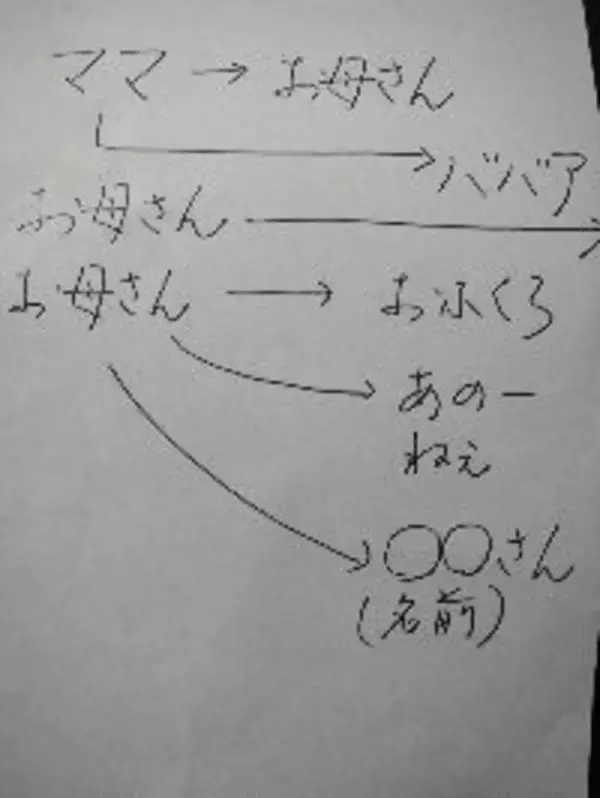 ママ → お母さん
ババア
お母さん →
お母さん → おふくろ
あのー
ねぇ
○○さん
(名前)